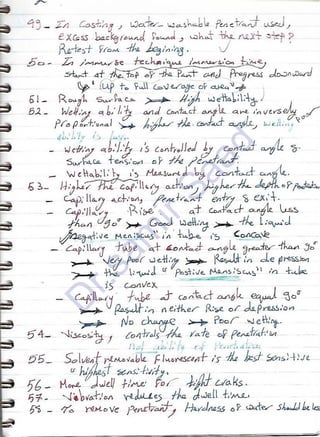 49- In Casting, Water-washable Penetrant used,
excess background found, what the next step?
Retest from the begining.
50- In immerse technique Immersion time,
start at the Top of the Part and Progress downward
(up to full coverage of area)
51- Rough surface → High wettability.
52- Wetting ability and contact angle are inversely
Proportional → higher the contact angle, wetting
ability is poor
- Wetting ability is controlled by contact angle &
surface tension of the penetrant
- Wettability is measured by contact angle.
53- Higher the capillary action, higher the depth of
- Capillary action, Penetrant entry & exit.
- Capillary Rise at contact angle less
than 90° → Good wetting → the liquid
"Negative Meniscus" in tube is Concave
- Capillary tube at contact angle greater than 90°
→ Very Poor wetting → Result in depression
→ the liquid "Postive Mensiscus" in tube
is convex
- Capillary tube at contact angle equal 90°
→ Result in neither Rise or depression
→ No change → Poor wetting.
54- Viscosity, control the rate of Penetration
Not ability of Penetration
55- Solvent removable fluorescent is the best sensitive
"highest sensitivity.
56- More dwell time for tight craks.
57- Vibration reduces the dwell time.
58- To remove Penetrant, Hardness of water should be less